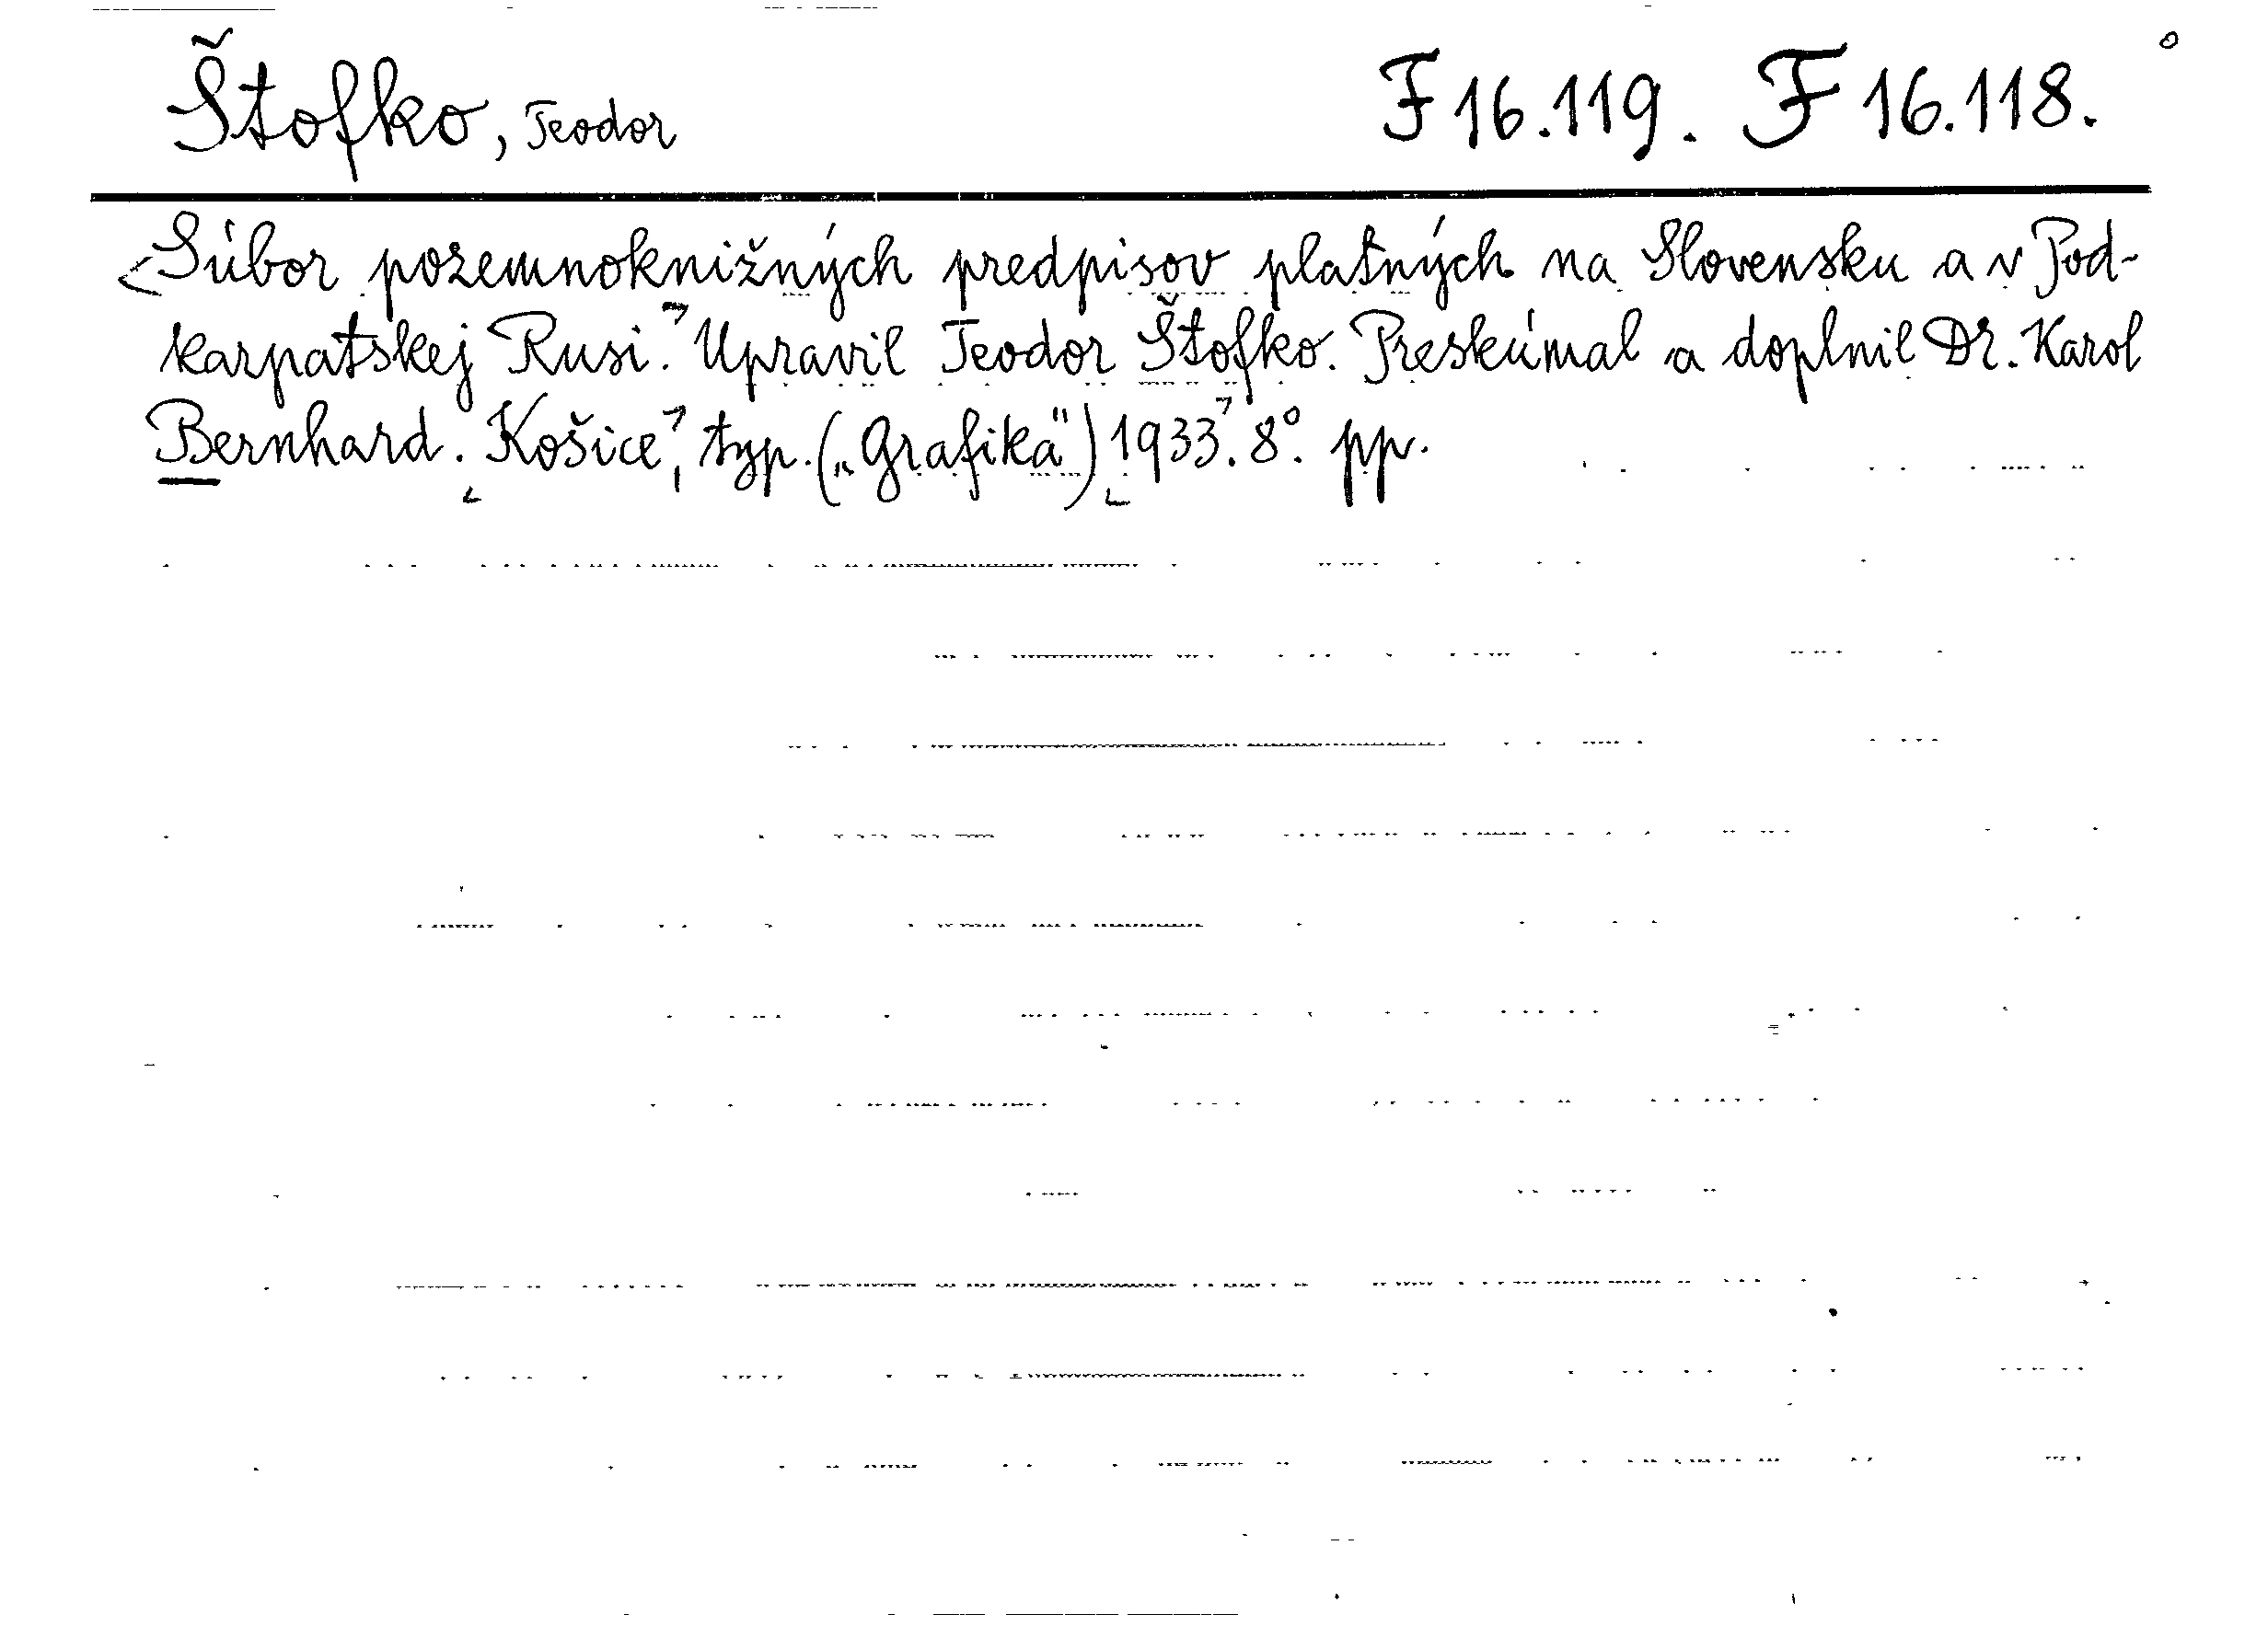 Štofko, Teodor F 16.119. F 16.118.
Súbor pozemnoknižných predpisov platných na Slovensku a v Pod-
karpatskej Rusi. Upravil Teodor Štofko. Preskúmal a doplnil Dr. Karol
Bernhard. Košice, typ. („Grafika") 1933. 8°. pp.